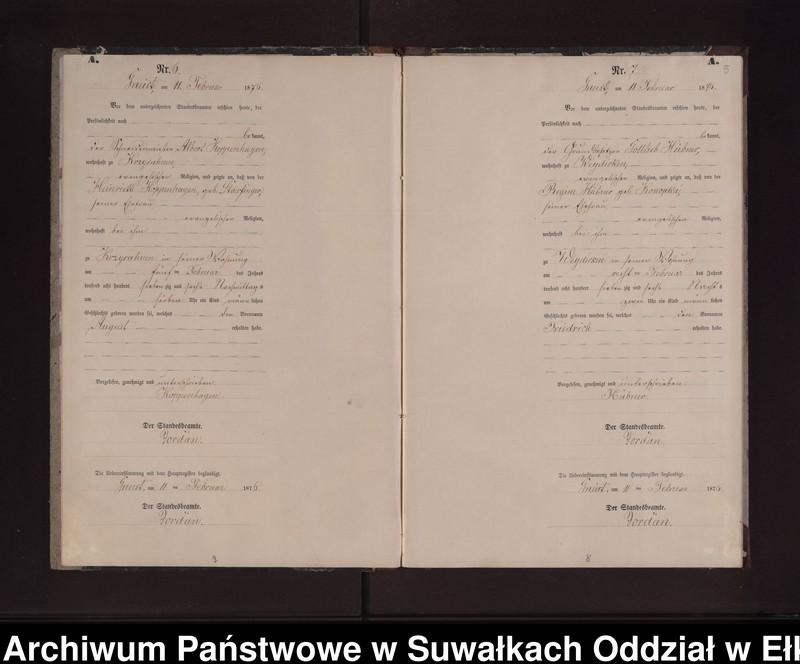 A.
Nr. 6
am 11 Februar 1876.
Vor dem unterzeichneten Standesbeamten erschien heute, der
Persönlichkeit nach
be kannt,
der Albert Koppenhagen,
wohnhaft zu
evangelischer Religion, und zeigte an, daß von der
Koppenhagen, geb.
seiner Ehefrau
evangelischer Religion,
wohnhaft bei ihm
zu in seiner Wohnung
am fünf ten Februar des Jahres
tausend acht hundert sieben zig und sechs Nachmittags
um sieben Uhr ein Kind männ lichen
Geschlechts geboren worden sei, welches den Vornamen
August erhalten habe.
Vorgelesen, genehmigt und unterschrieben
Koppenhagen.
Der Standesbeamte.
Jordan.
Die Uebereinstimmung mit dem Hauptregister beglaubigt.
am 11 ten Februar 1876.
Der Standesbeamte.
Jordan.
A.
Nr. 7
am 11 Februar 1876.
Vor dem unterzeichneten Standesbeamten erschien heute, der
Persönlichkeit nach
be kannt,
der Grundbesitzer Gottlieb Hübner,
wohnhaft zu Weydicken,
evangelischer Religion, und zeigte an, daß von der
Regine Hübner geb.
seiner Ehefrau
evangelischer Religion,
wohnhaft bei ihm
zu Weydicken in seiner Wohnung
am acht ten Februar des Jahres
tausend acht hundert sieben zig und sechs Nachts
um zwei Uhr ein Kind männ lichen
Geschlechts geboren worden sei, welches den Vornamen
Friedrich erhalten habe.
Vorgelesen, genehmigt und unterschrieben
Hübner.
Der Standesbeamte.
Jordan.
Die Uebereinstimmung mit dem Hauptregister beglaubigt.
am 11 ten Februar 1876.
Der Standesbeamte.
Jordan.
8
Archiwum Państwowe w Suwałkach Oddział w Ełk